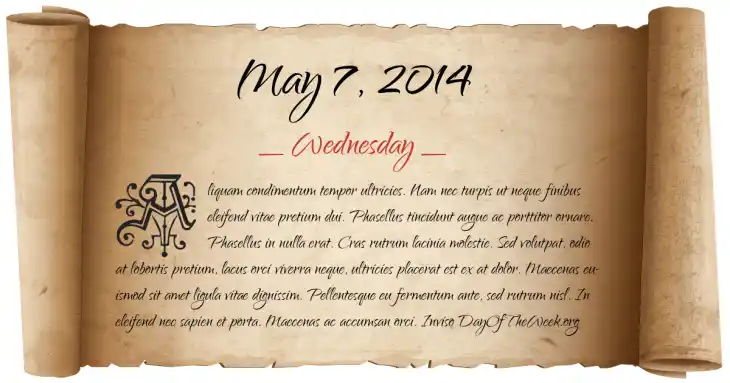 May 7, 2014
_ Wednesday _
Aliquam condimentum tempor ultricies. Nam nec turpis ut neque finibus
eleifend vitae pretium dui. Phasellus tincidunt augue ac porttitor ornare.
Phasellus in nulla erat. Cras rutrum lacinia molestie. Sed volutpat, odio
at lobortis pretium, lacus orci viverra neque, ultricies placerat est ex at dolor. Maecenas eu-
ismod sit amet ligula vitae dignissim. Pellentesque eu fermentum ante, sed rutrum nisl. In
eleifend nec sapien et porta. Maecenas ac accumsan orci. Inviso DayOfTheWeek.org